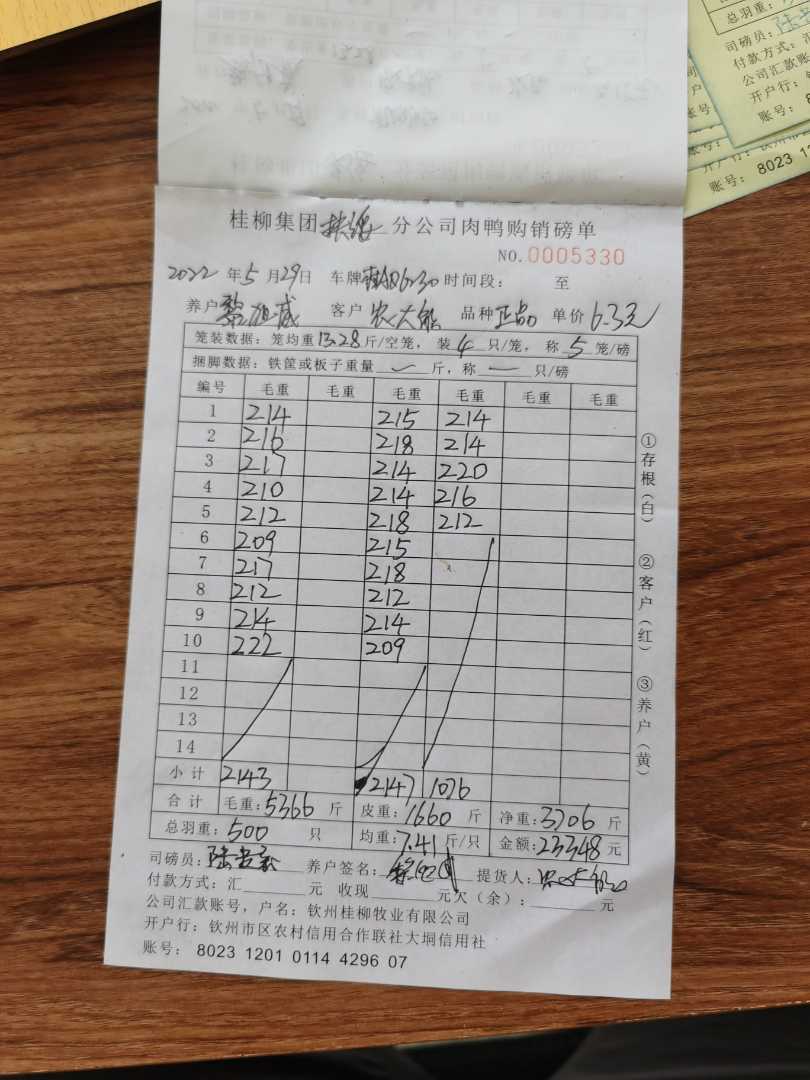 桂柳集团 分公司肉鸭购销磅单
NO.0005330
2022年5月29日 车牌 0630 时间段: 至
养户 客户 农大 品种 正品 单价 6.3元
笼装数据: 笼均重13.28斤/空笼, 装4只/笼, 称5笼/磅
捆脚数据: 铁筐或板子重量 斤, 称 只/磅
编号 毛重 毛重 毛重 毛重 毛重 毛重
1 214 215 214
2 216 218 214
3 217 214 220
4 210 214 216
5 212 218 212
6 209 215
7 217 218
8 212 212
9 214 214
10 222 209
11
12
13
14
小计 2143 2147 1076
合计 毛重:5366斤 皮重:1660斤 净重:3706斤
总羽重:500只 均重:7.41斤/只 金额:23348元
司磅员: 养户签名: 提货人:
付款方式: 汇 元 收现 元欠(余): 元
公司汇款账号, 户名: 钦州桂柳牧业有限公司
开户行: 钦州市区农村信用合作联社大垌信用社
账号: 8023 1201 0114 4296 07
①存根(白) ②客户(红) ③养户(黄)
总羽重:
司磅员:
付款方式: 汇
公司汇款账
开户行:
账号: 8
账号: 8023 1